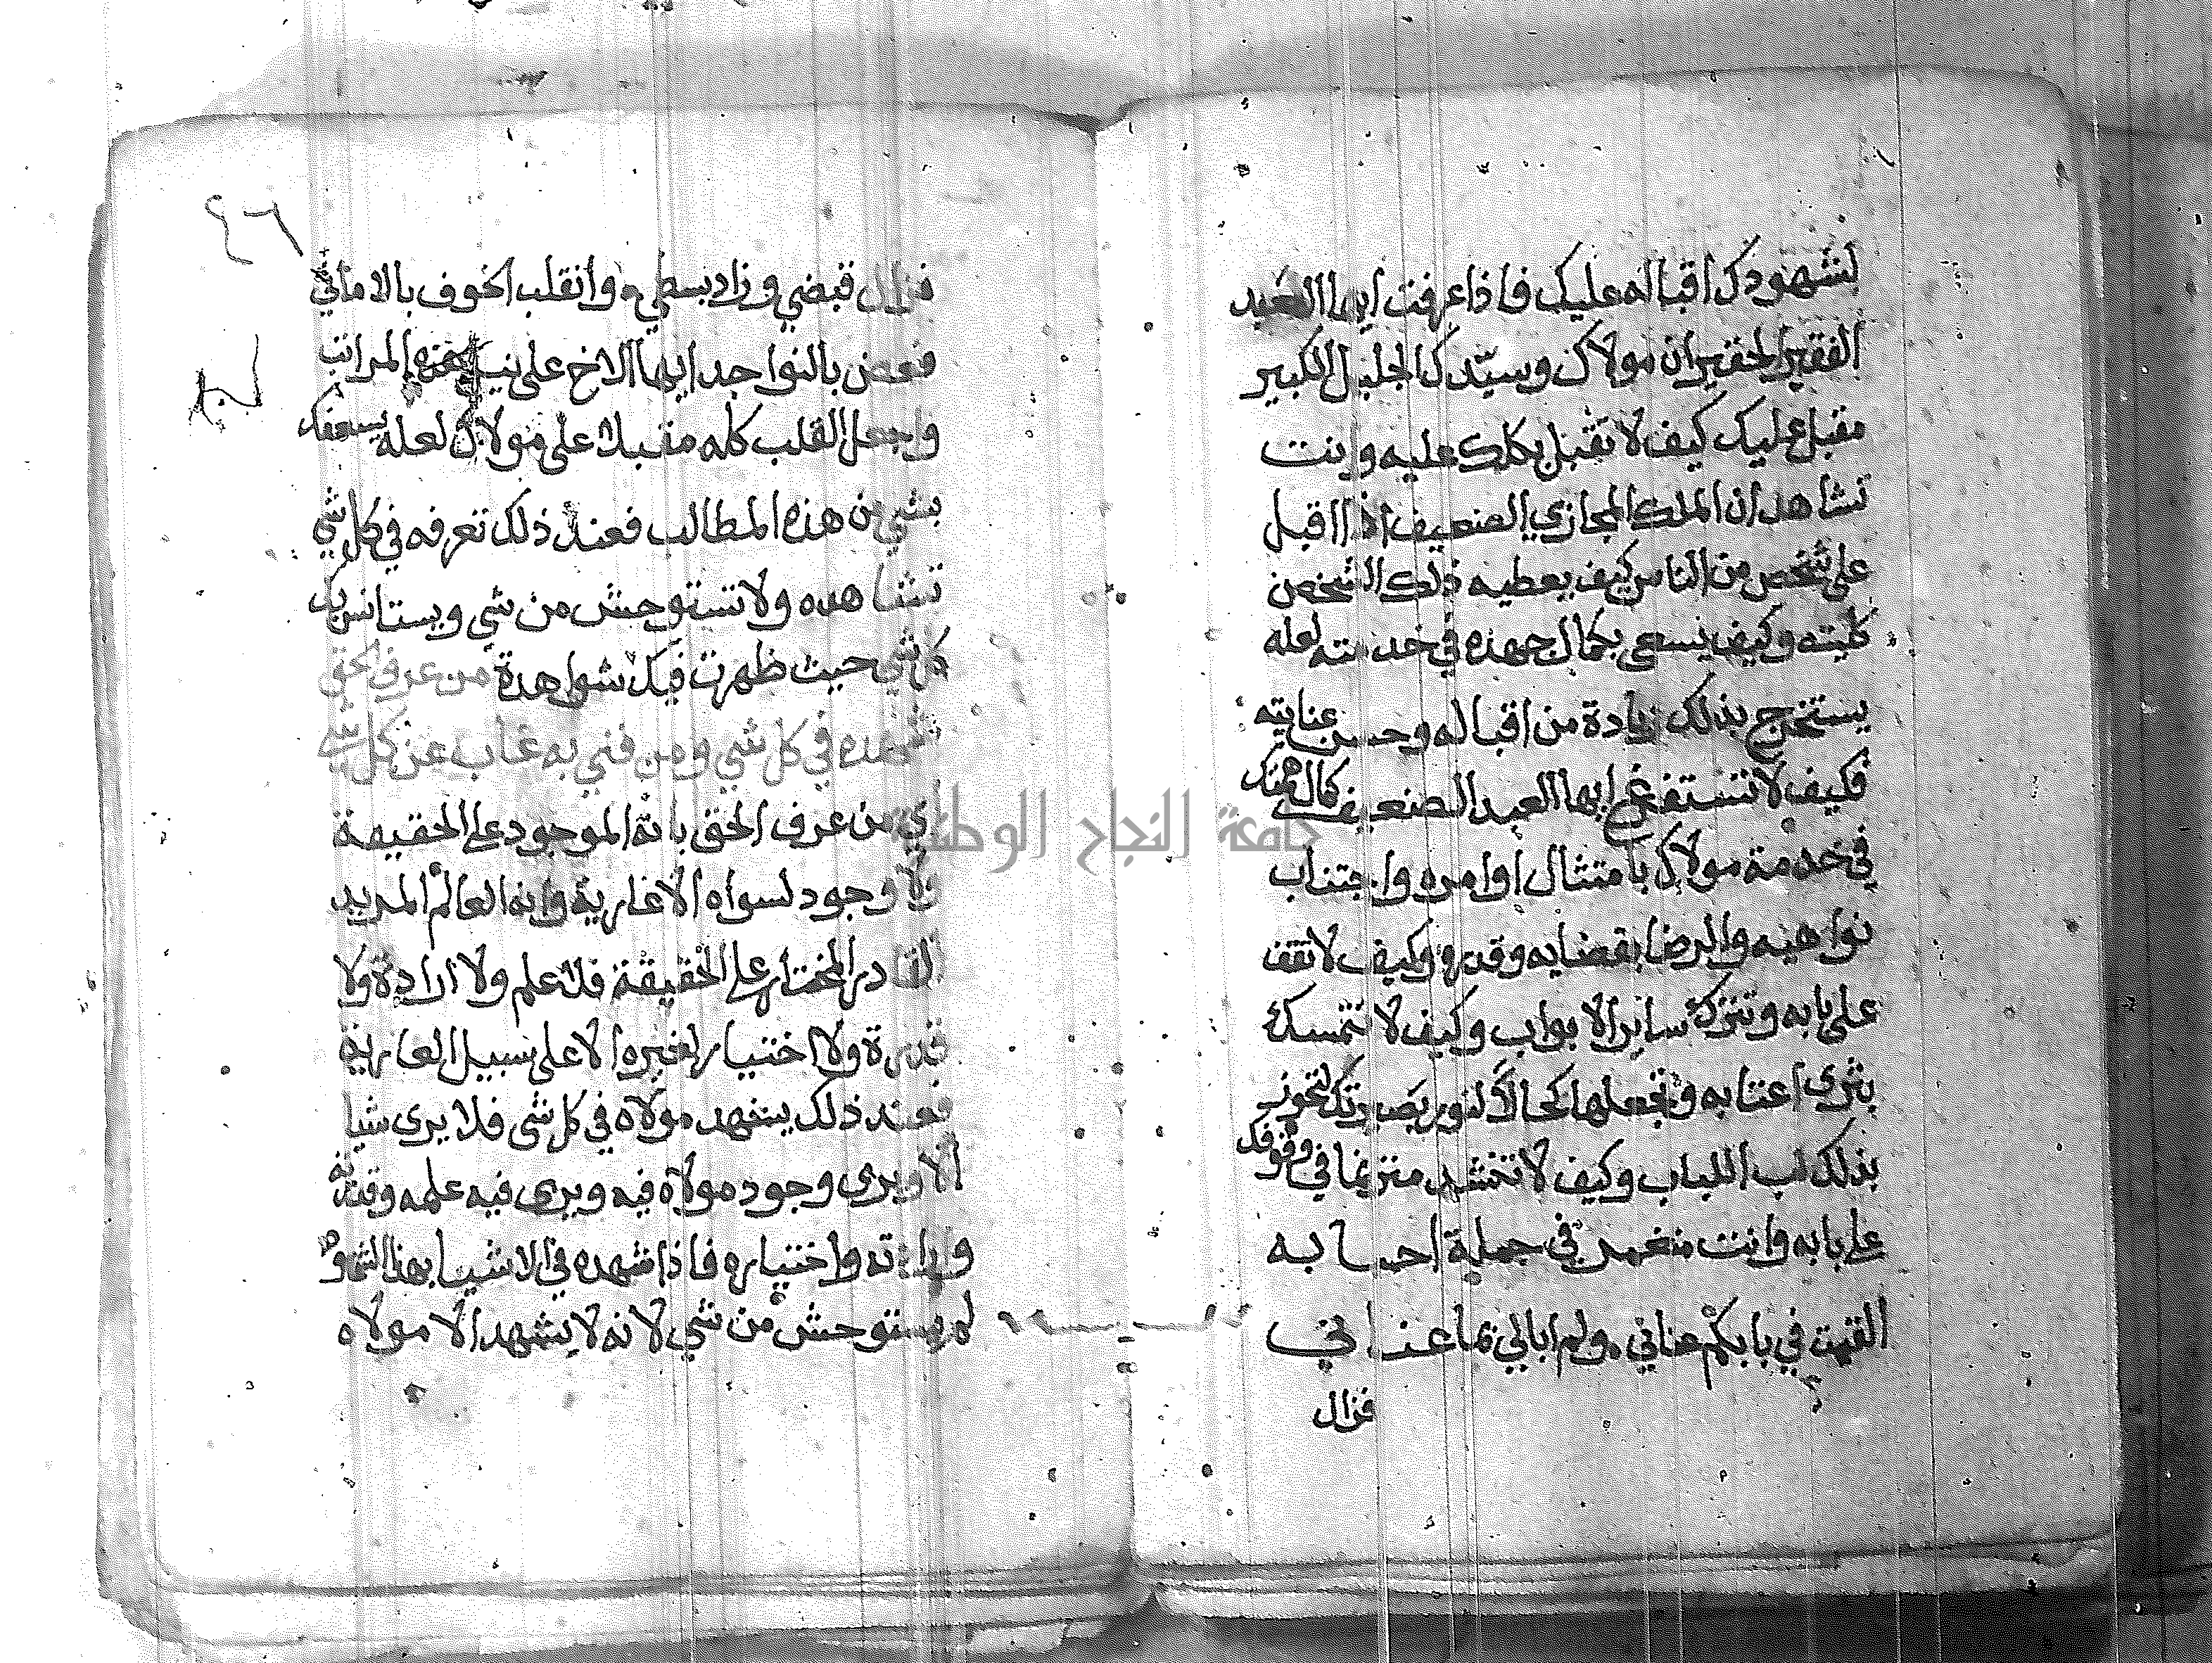 لشهودك اقباله عليك فاذا عرفت ايها العبد
الفقير الحقير ان مولاك وسيدك الجليل الكبير
مقبل عليك كيف لا تقبل بكلك عليه وانت
تشاهد ان الملك المجازي الضعيف اذا اقبل
على شخص من الناس كيف يعطيه ذلك الشخص
كليته وكيف يسعى بكمال جهده في خدمته لعله
يستخرج بذلك زيادة من اقباله وحسن عنايته
فكيف لا تستفرغ ايها العبد الضعيف كمال جهدك
في خدمة مولاك بامتثال اوامره واجتناب
نواهيه والرضا بقضايه وقدره وكيف لا تقف
على بابه وتترك ساير الابواب وكيف لا تتمسك
بثرى اعتابه وتجعلها كحالا لنور بصيرتك لتحوز
بذلك لب اللباب وكيف لا تنشد مترنما في وقوفك
على بابه وانت منغمر في جملة احبابه
القيت في بابكم عناني ولم ابالي بما عناني
فزال
٤٦
فزال قبضي وزاد بسطي وانقلب الخوف بالاماني
فعض بالنواجد ايها الاخ على نيل هذه المراتب
واجعل القلب كله مقبلا على مولاك لعله يسعفك
بشي من هذه المطالب فعند ذلك تعرفه في كل شي
تشاهده ولا تستوحش من شي ويستانس بك
كل شي حيث ظهرت فيك شواهدة من عرف الحق
شهده في كل شي ومن فني به غاب عن كل شي
اي من عرف الحق بانه الموجود على الحقيقة
ولا وجود لسواه الا عارية وانه العالم المريد
القادر المختار على الحقيقة فلا علم ولا ارادة ولا
قدرة ولا اختيار لغيره الا على سبيل العارية
فعند ذلك يشهد مولاه في كل شي فلا يرى شيا
الا ويرى وجود مولاه فيه ويرى فيه علمه وقدرته
وارادته واختياره فاذا شهده في الاشيا بهذا الشهود
لم يستوحش من شي لانه لا يشهد الا مولاه
جامعة النجاح الوطنية